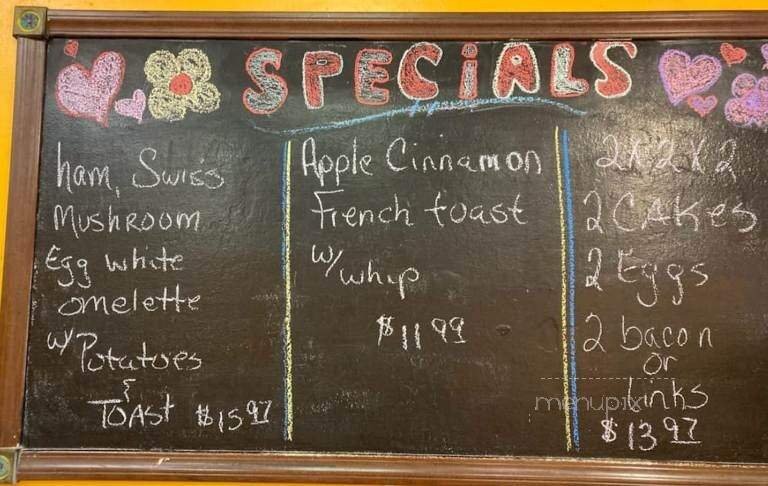 SPECIALS
ham, Swiss
Mushroom
Egg white
omelette
w/ Potatoes
&
TOAST $15 97
Apple Cinnamon
French toast
w/ whip
$11 99
2 x 2 x 2
2 CAKes
2 Eggs
2 bacon
or
links
menupix
$13 97